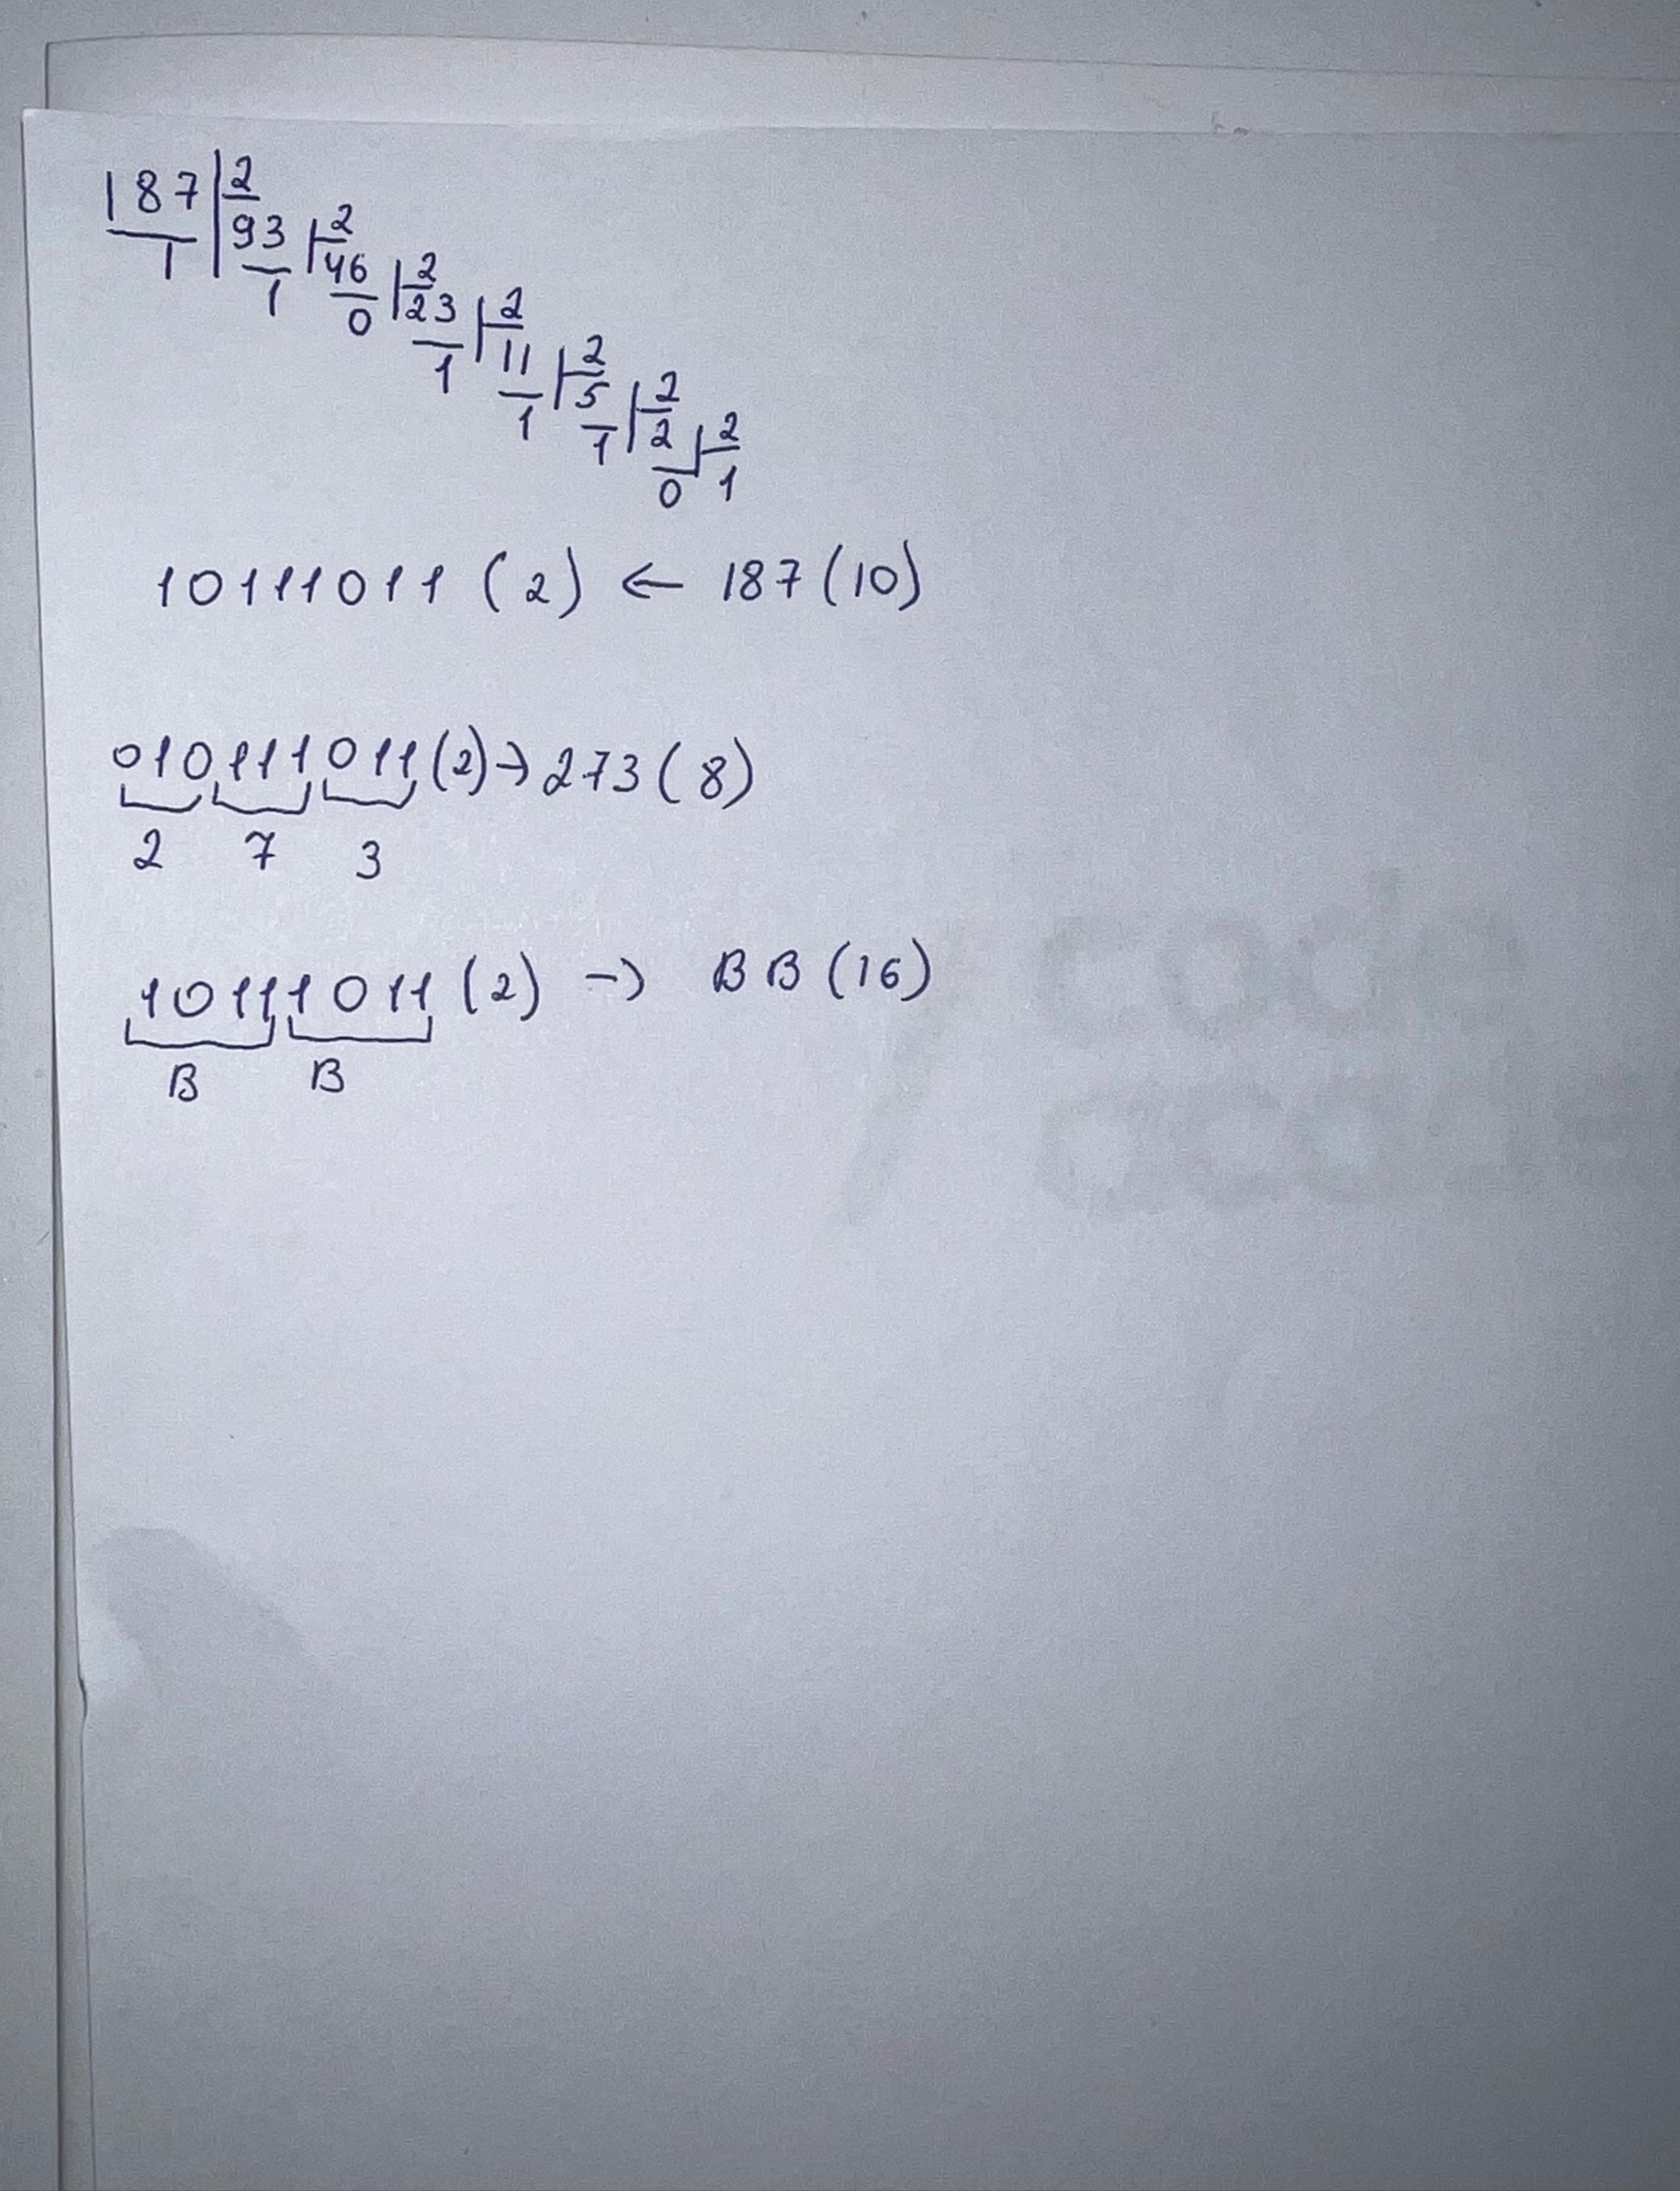 187 2
1 93 2
1 46 2
0 23 2
1 11 2
1 5 2
1 2 2
0 1
10111011 (2) ← 187 (10)
010111011 (2) → 273 (8)
2 7 3
10111011 (2) → BB (16)
B B
code